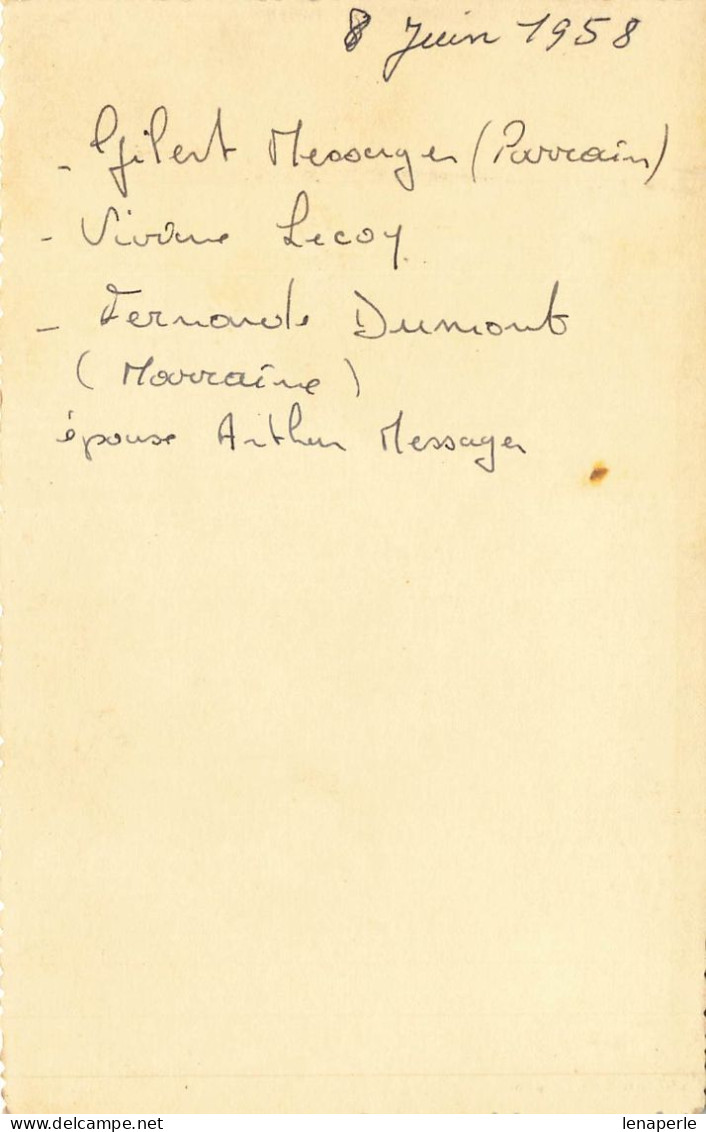 8 Juin 1958
- Gilbert Messager (Parrain)
- Viviane Lecoy
- Fernande Dumont
(Marraine)
épouse Arthur Messager
delcampe.net
lenaperle